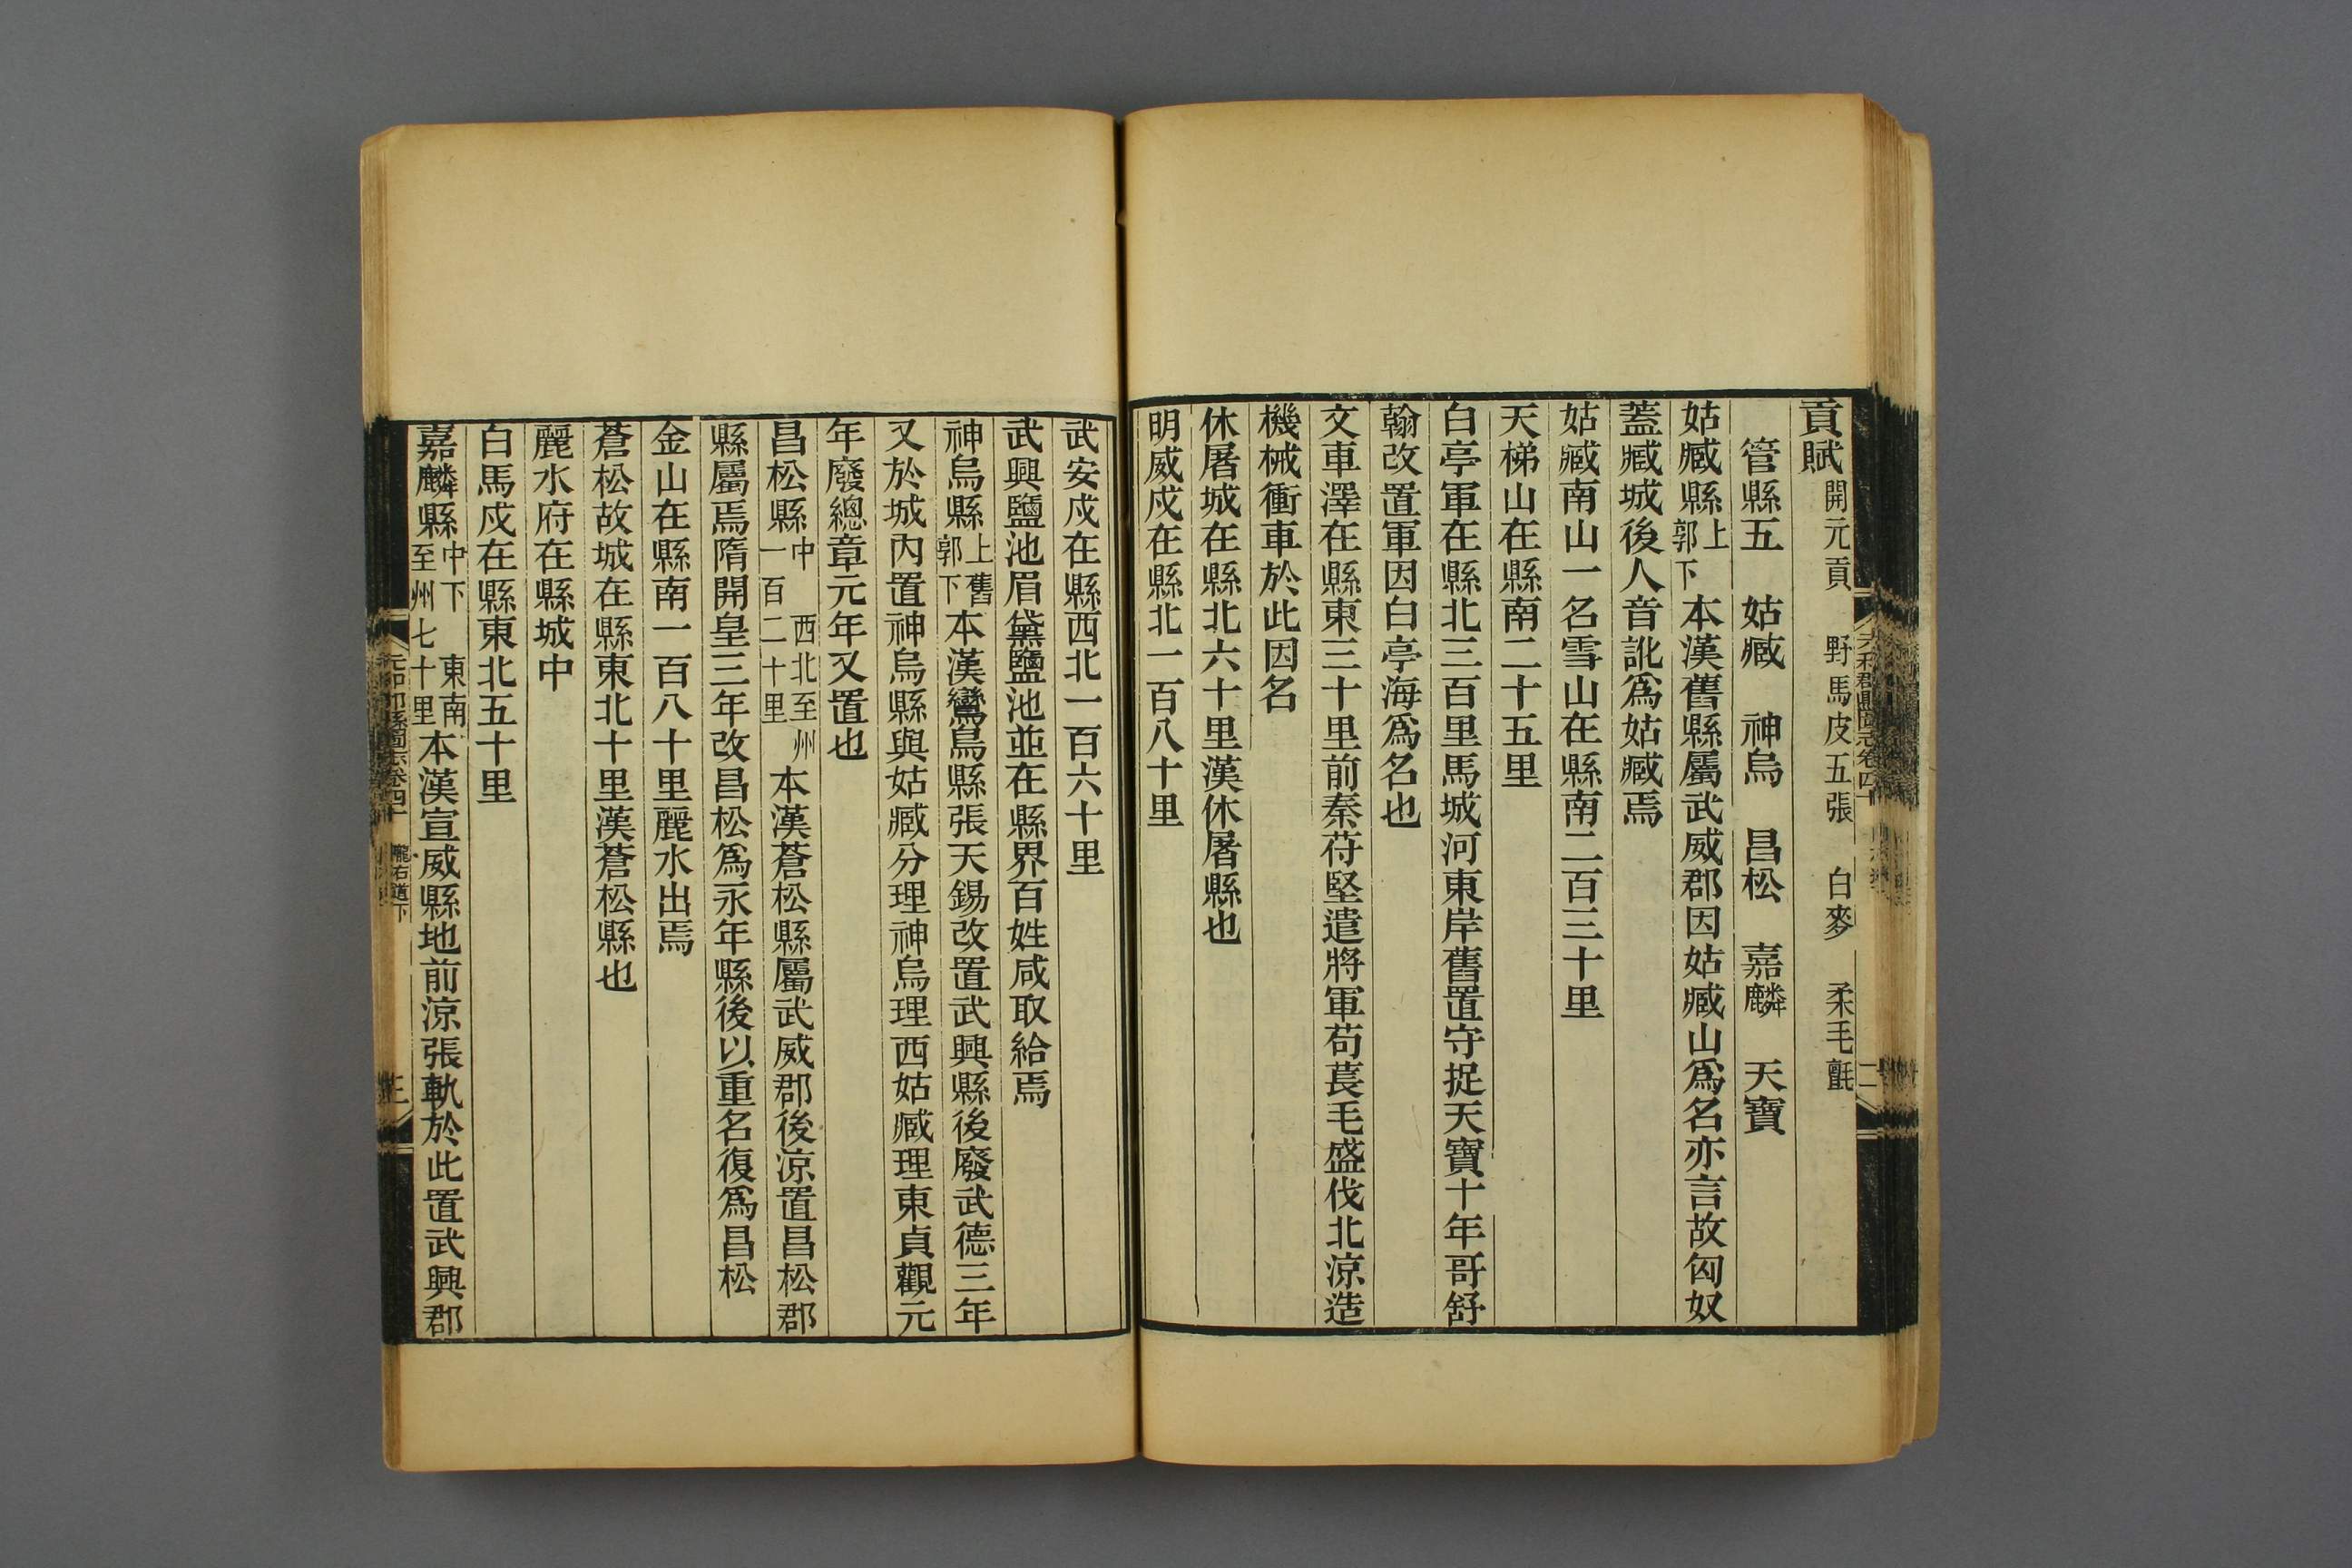 貢賦開元貢 野馬皮五張 白麥 柔毛氈
管縣五 姑臧 神烏 昌松 嘉麟 天寶
姑臧縣上郭下本漢舊縣屬武威郡因姑臧山爲名亦言故匈奴
蓋臧城後人音訛爲姑臧焉
姑臧南山一名雪山在縣南二百三十里
天梯山在縣南二十五里
白亭軍在縣北三百里馬城河東岸舊置守捉天寶十年哥舒
翰改置軍因白亭海爲名也
文車澤在縣東三十里前秦苻堅遣將軍苟萇毛盛伐北涼造
機械衝車於此因名
休屠城在縣北六十里漢休屠縣也
明威戍在縣北一百八十里
武安戍在縣西北一百六十里
武興鹽池眉黛鹽池並在縣界百姓咸取給焉
神烏縣上舊郭下本漢鸞鳥縣張天錫改置武興縣後廢武德三年
又於城內置神烏縣與姑臧分理神烏理西姑臧理東貞觀元
年廢總章元年又置也
昌松縣中 西北至州一百二十里本漢蒼松縣屬武威郡後涼置昌松郡
縣屬焉隋開皇三年改昌松爲永年縣後以重名復爲昌松
金山在縣南一百八十里麗水出焉
蒼松故城在縣東北十里漢蒼松縣也
麗水府在縣城中
白馬戍在縣東北五十里
嘉麟縣中下 東南至州七十里本漢宣威縣地前涼張軌於此置武興郡
元和郡縣圖志卷四十 隴右道下 三